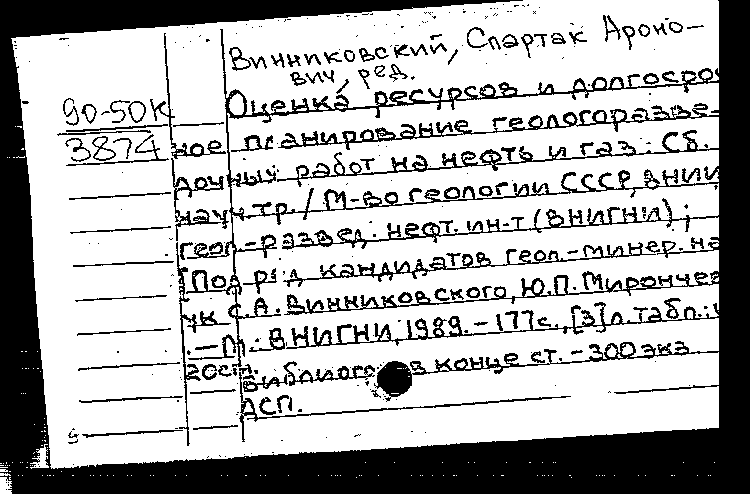 Винниковский, Спартак Ароно-
вич, ред.
90-50К
3874
Оценка ресурсов и долгосроч
ное планирование геологоразве-
дочных работ на нефть и газ: Сб.
науч. тр. / М-во геологии СССР, ВНИИ
геол.-развед. нефт. ин-т (ВНИГНИ);
[Под ред. кандидатов геол.-минер. на
ук С.А. Винниковского, Ю.П. Мирончев
.-М.: ВНИГНИ, 1989. - 177с., [3] л. табл.:
20см.
Библиогр. в конце ст. - 300 экз
ДСП.